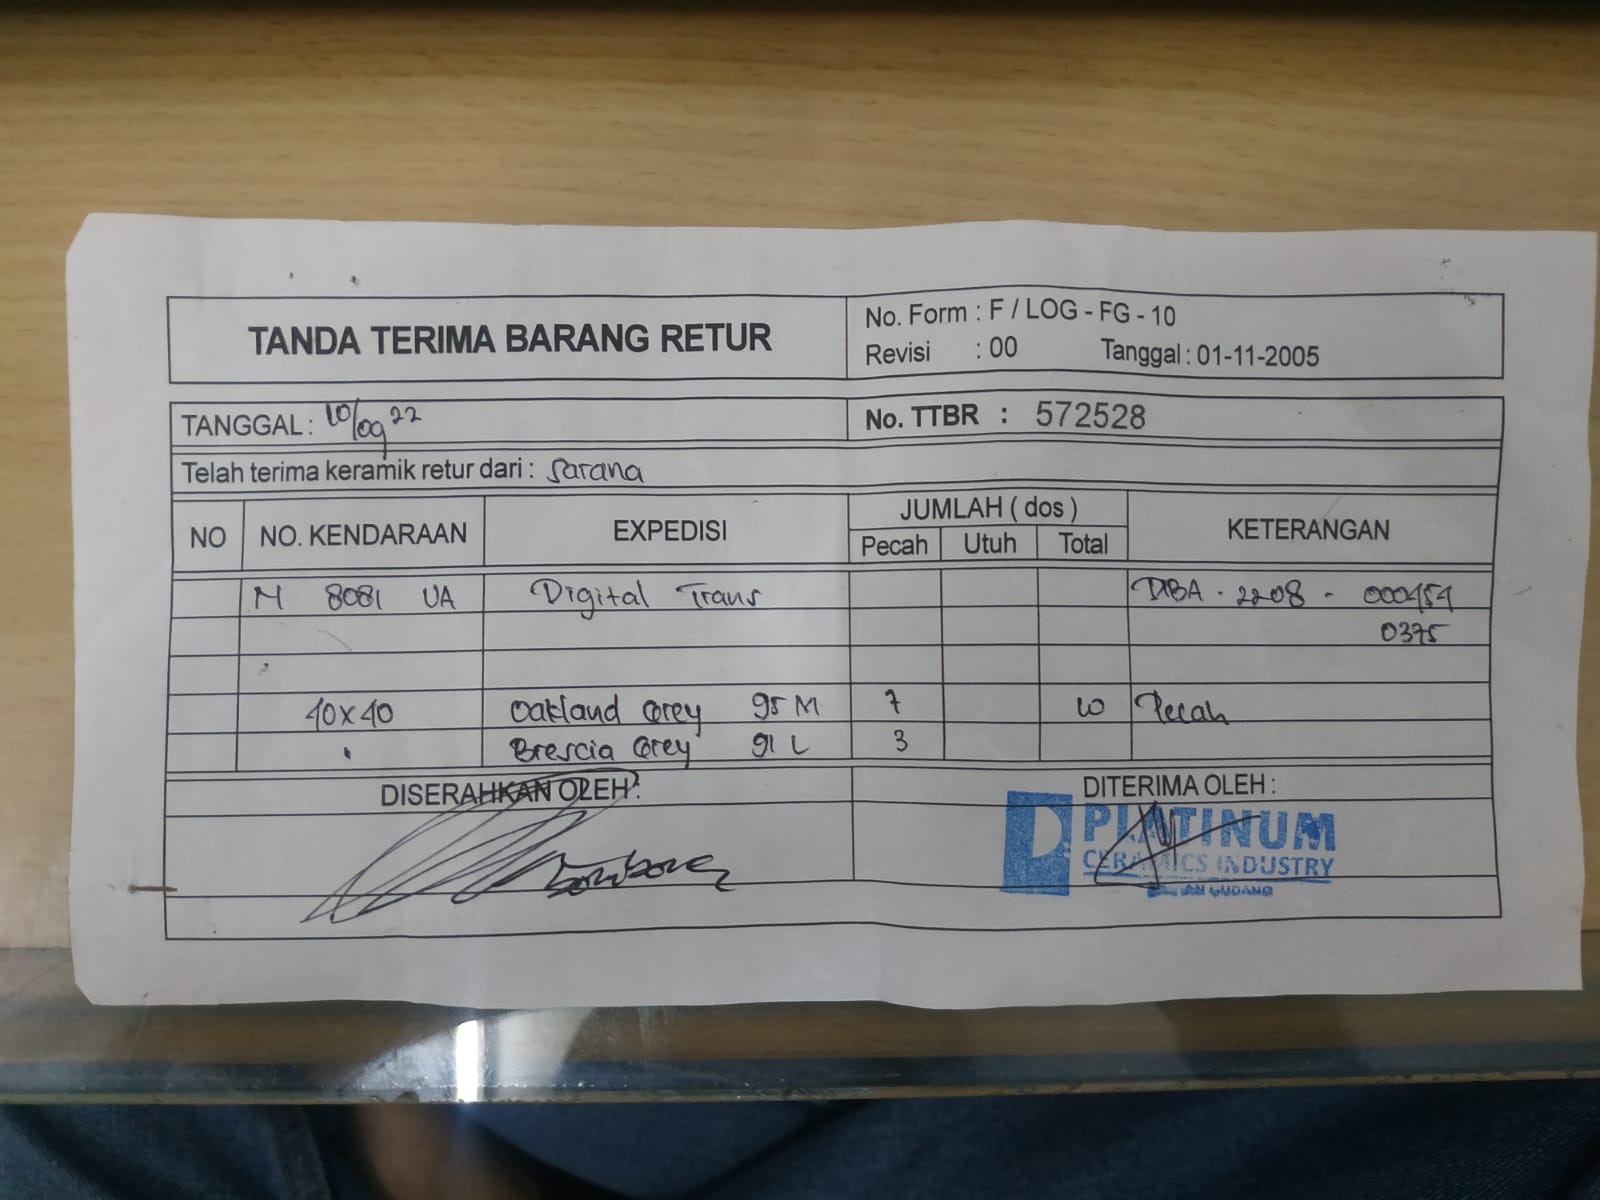 TANDA TERIMA BARANG RETUR
No. Form : F / LOG - FG - 10
Revisi : 00 Tanggal : 01-11-2005
TANGGAL : 10/09 22
No. TTBR : 572528
Telah terima keramik retur dari : Sarana
NO NO. KENDARAAN EXPEDISI JUMLAH ( dos ) KETERANGAN
Pecah Utuh Total
M 8081 UA Digital Trans DBA - 2208 - 000454
0375
40x40 Oakland Grey 95 M 7 10 Pecah
" Brescia Grey 91 L 3
DISERAHKAN OLEH : DITERIMA OLEH :
PLATINUM
CERAMICS INDUSTRY
BAGIAN GUDANG